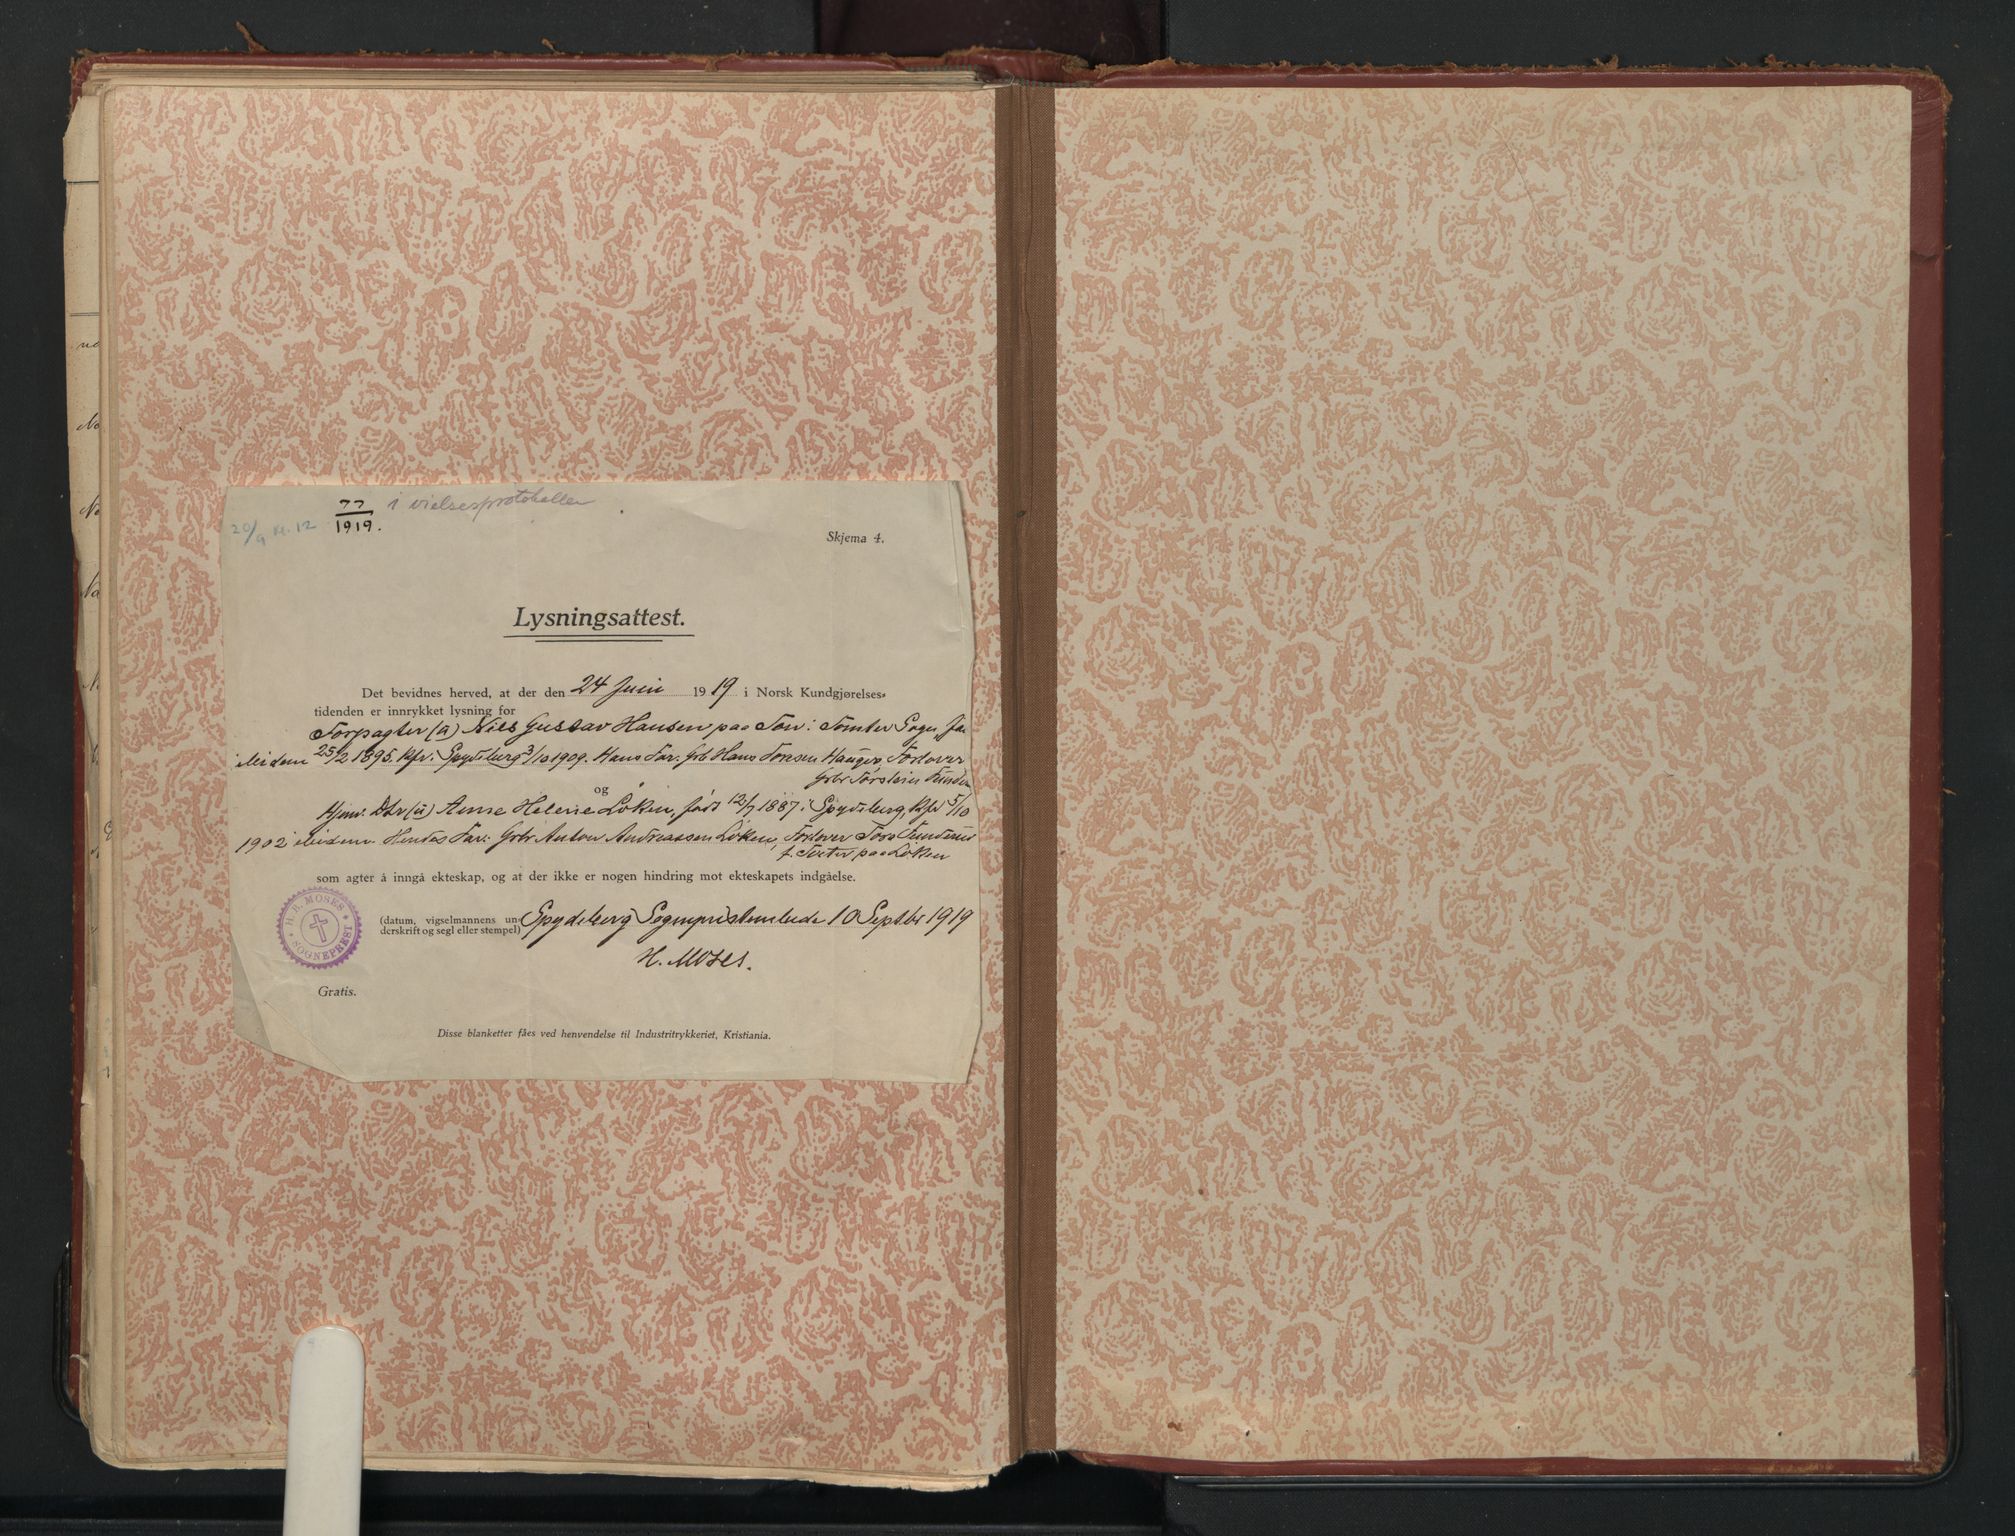 77 i vielsesprotokollen
20/9 kl. 12 1919.
Skjema 4.
Lysningsattest.
Det bevidnes herved, at der den 24 Juni 1919 i Norsk Kundgjørelses-
tidenden er innrykket lysning for
Forpagter (a) Nils Gustav Hansen paa Ton i Tomter Sogn,
ibidem 25/2 1895. Kfr. i Spydeberg 3/10 1909. Hans Far: Grb Hans Hauger, Forlover
Grbr Torstein
og
Hjmv. Dtr (u) Anne Helene Løken, født 12/7 1887 i Spydeberg, Kfr 5/10
1902 ibidem. Hendes Far: Grbr Anton Andreassen Løken, Forlover
f. Tveter paa Løken
som agter å inngå ekteskap, og at der ikke er nogen hindring mot ekteskapets indgåelse.
(datum, vigselmannens un- Spydeberg Sogneprestembede 10 Septbr 1919
derskrift og segl eller stempel)
H. Moses.
H. B. MOSES
SOGNEPREST
Gratis.
Disse blanketter fåes ved henvendelse til Industritrykkeriet, Kristiania.